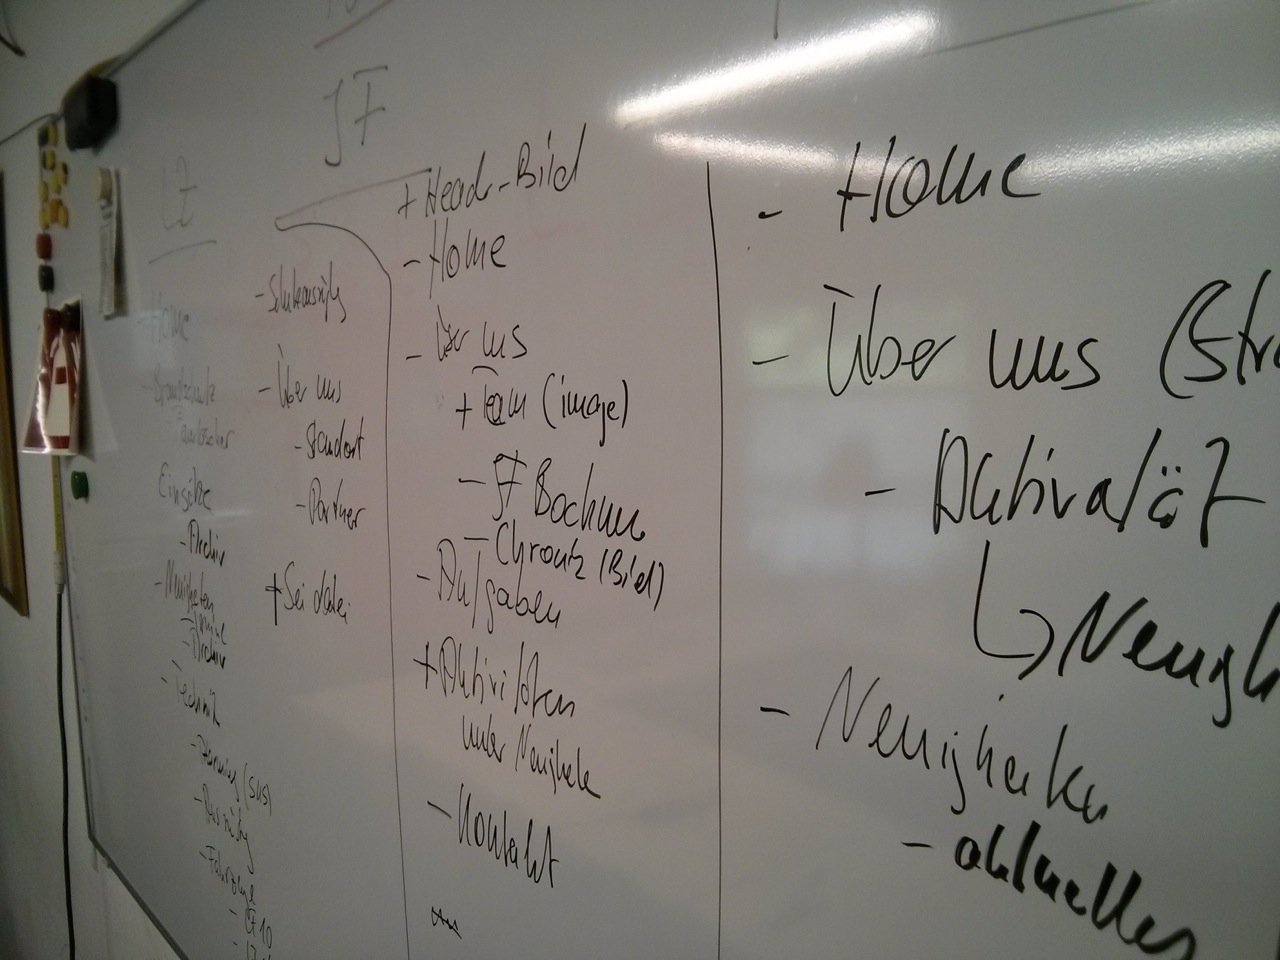 LZ
Home
Einsätze
- Archiv
- Neuigkeiten
- Termine
- Archiv
- Technik
- Über uns
- Standort
- Partner
+ Sei dabei
JF
+ Head-Bild
- Home
- Über uns
+ Team (image)
- JF Bochum
- Chronik (Bild)
- Aufgaben
+ Aktivitäten
unter Neuigkeite
- Kontakt
- Home
- Über uns (Str
- Aktivität
Neuigk
- Neuigkeiten
- aktuelles